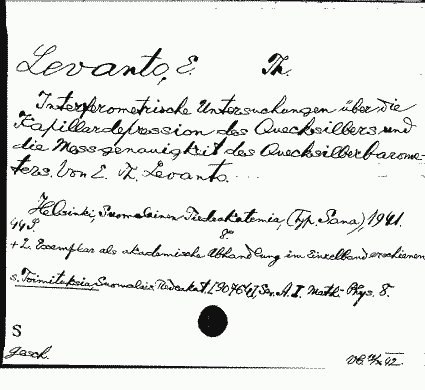 Levanto, E. Th.
Interferometrische Untersuchungen über die
Kapillardepression des Quecksilbers und
die Messgenauigkeit des Quecksilberbarome-
ters. Von E. Th. Levanto.
Helsinki, Suomalainen Tiedeakatemia, (Typ. Sana), 1941.
44 S. 8°
+ 2. Exemplar als akademische Abhandlung im Einzelband erschienen
s. Toimituksia, Suomalais. Tiedeakat. Ser. A. I. Math.-Phys. 8.
S
gesch.